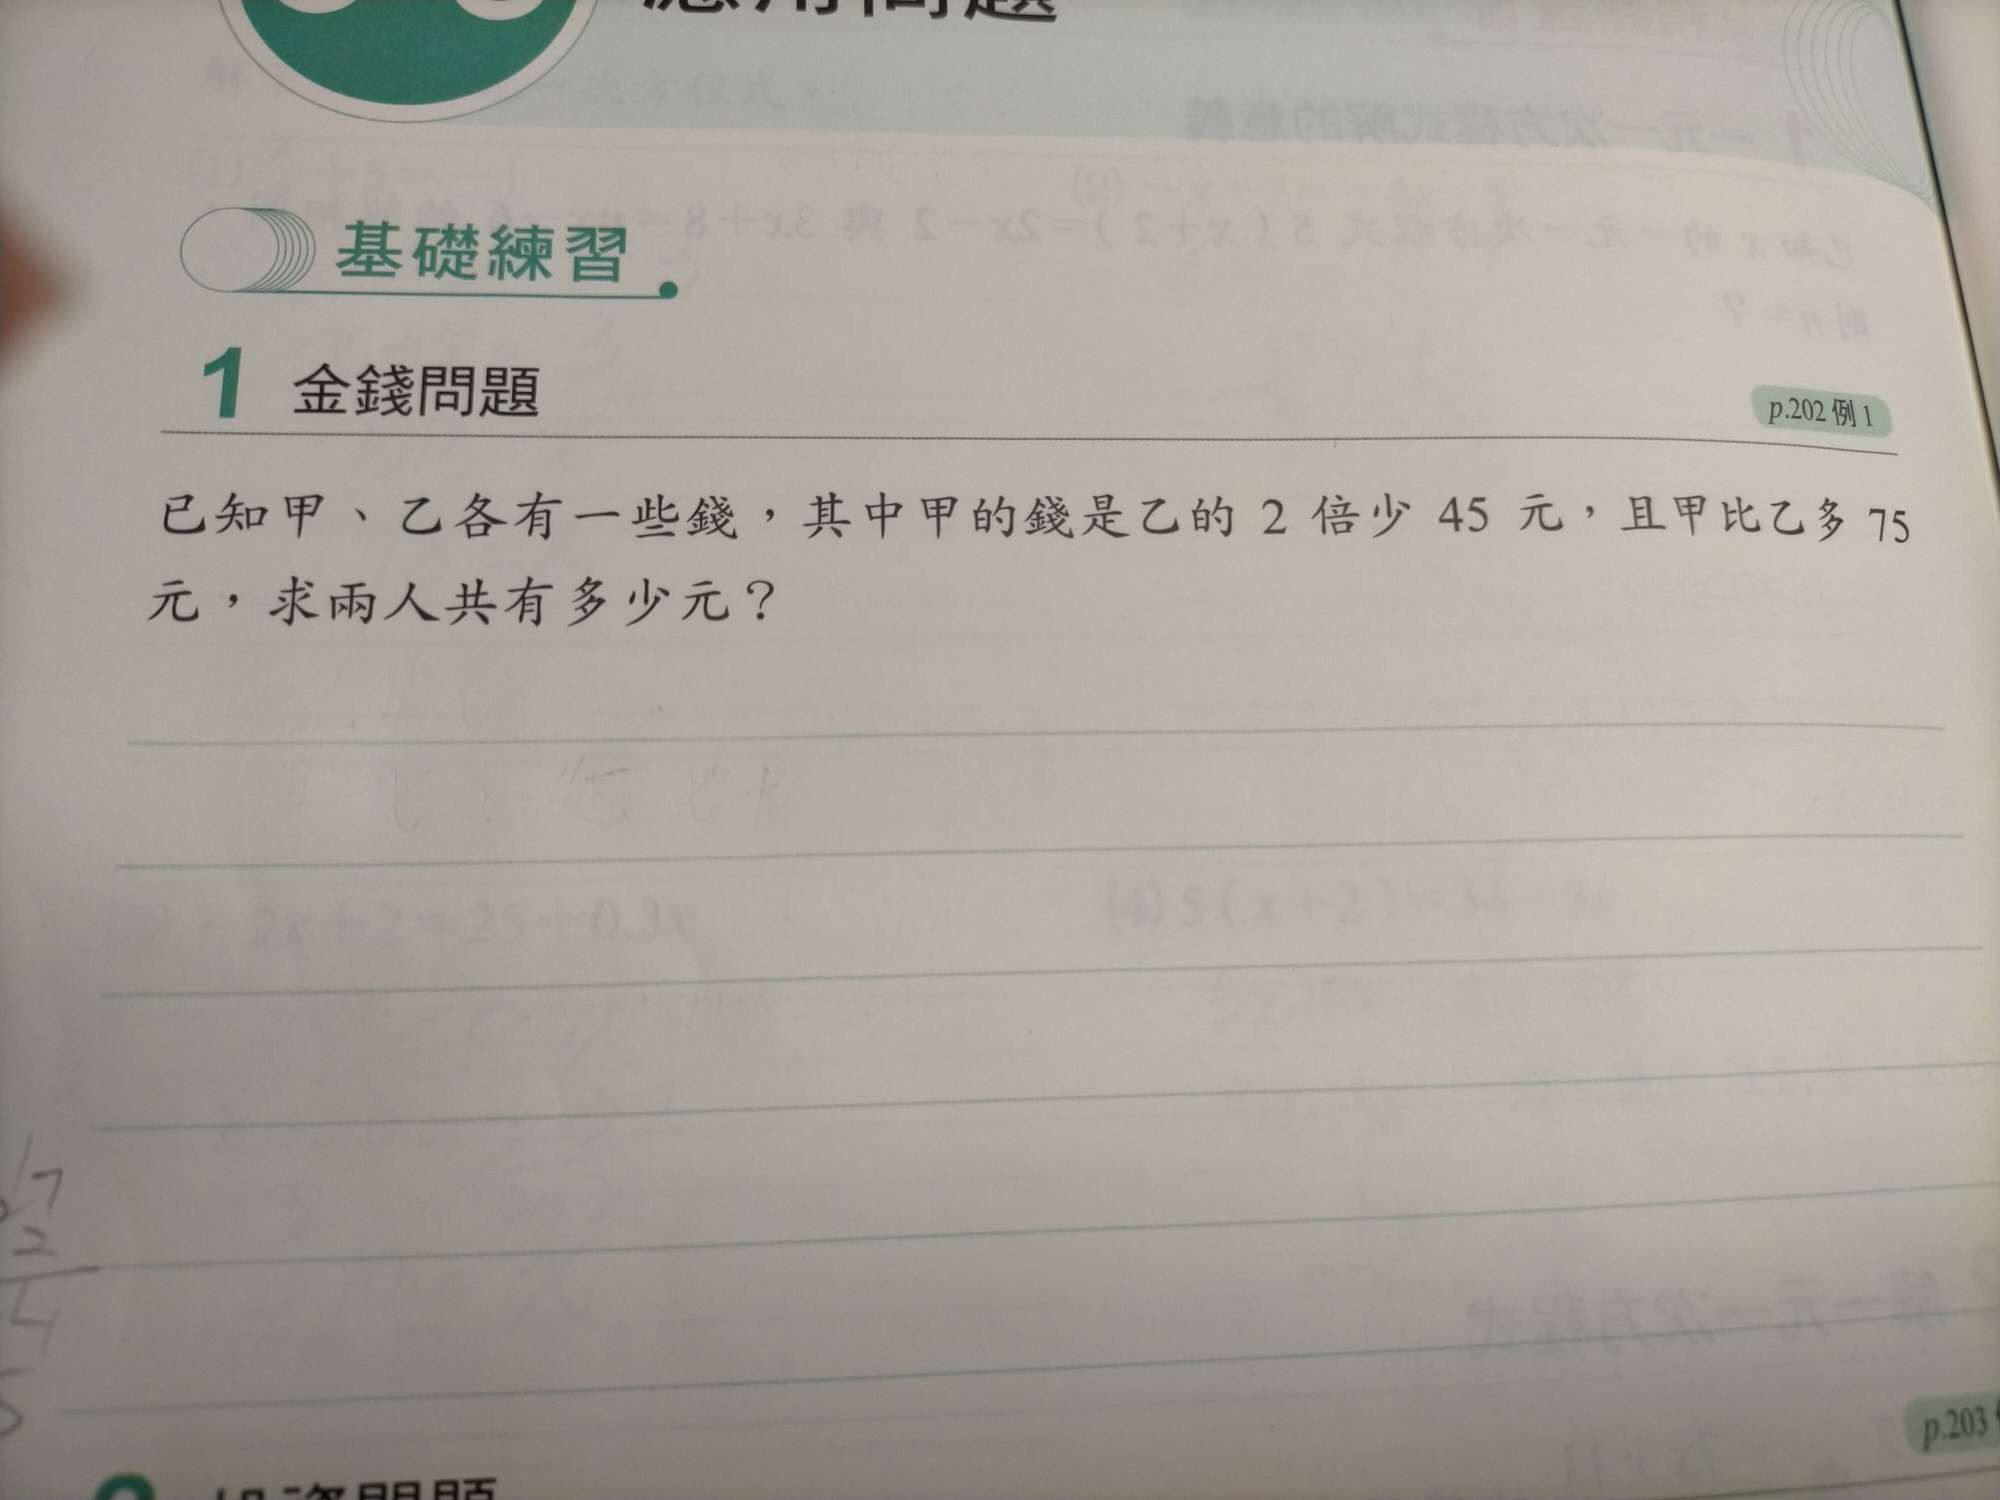 應用問題
基礎練習
1 金錢問題
p.202 例 1
已知甲、乙各有一些錢，其中甲的錢是乙的 2 倍少 45 元，且甲比乙多 75
元，求兩人共有多少元？
17
2
p.203